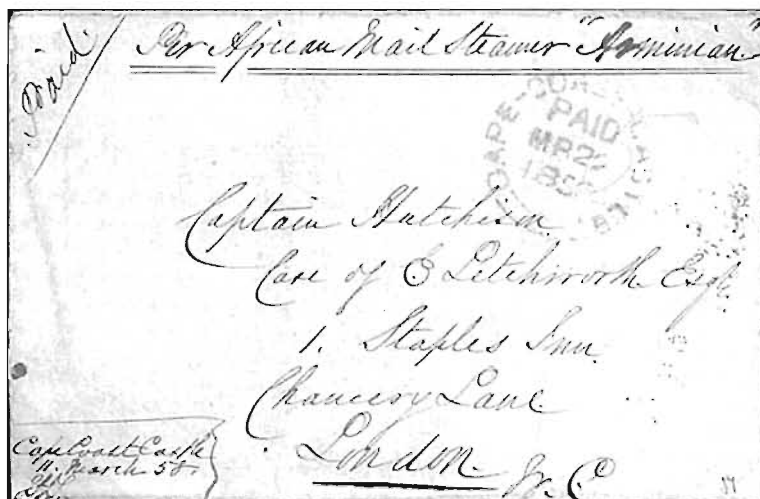 Paid.
Per African Mail Steamer "Armenian"
CAPE COAST CASTLE
PAID
MR 22
Captain Hutchison
Care of E Letchworth Esqre
1. Staples Inn
Chancery Lane
London W. C
Cape Coast Castle
11. March 58